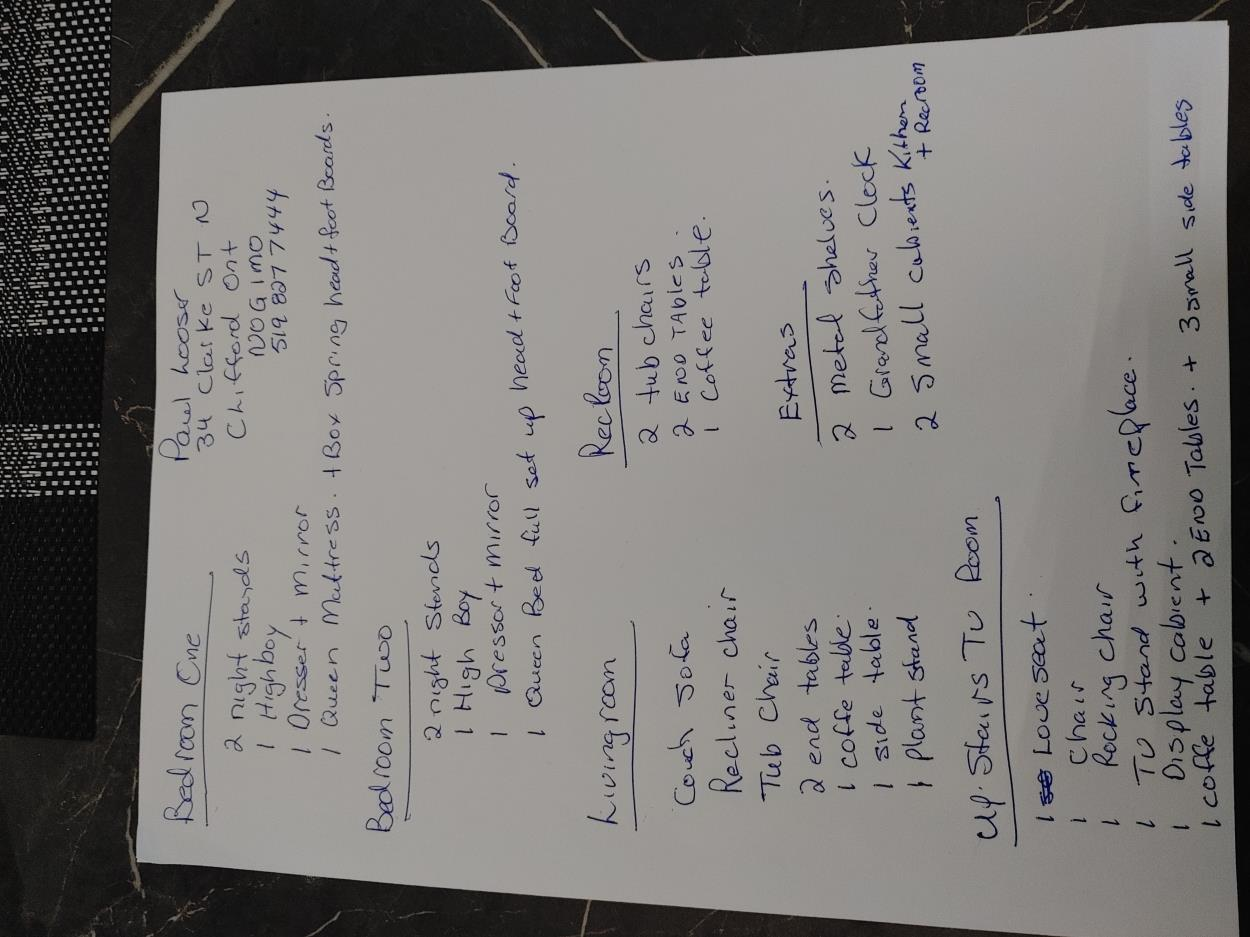 Bedroom One
Paul Looser
34 Clarke ST N
Chifford Ont
N0G 1M0
519 827 7444
2 night stands
1 Highboy
1 Dresser + mirror
1 Queen Mattress. + Box Spring head + foot Boards.
Bedroom Two
2 night Stands
1 High Boy
1 Dressor + mirror
1 Queen Bed full set up head + Foot Board.
Livingroom
Couch Sofa
Recliner chair
Tub Chair
2 end tables
1 coffe table.
1 side table.
1 plant stand
RecRoom
2 tub chairs
2 END TABles.
1 Coffee table.
Extras
2 metal shelves.
1 Grandfather Clock
2 Small cabients Kithen
+ Recroom
Up. Stairs TV Room
1 Loveseat.
1 Chair
1 Rocking chair
1 TV Stand with fireplace.
1 Display cabient.
1 coffe table + 2 END Tables. + 3 small side tables